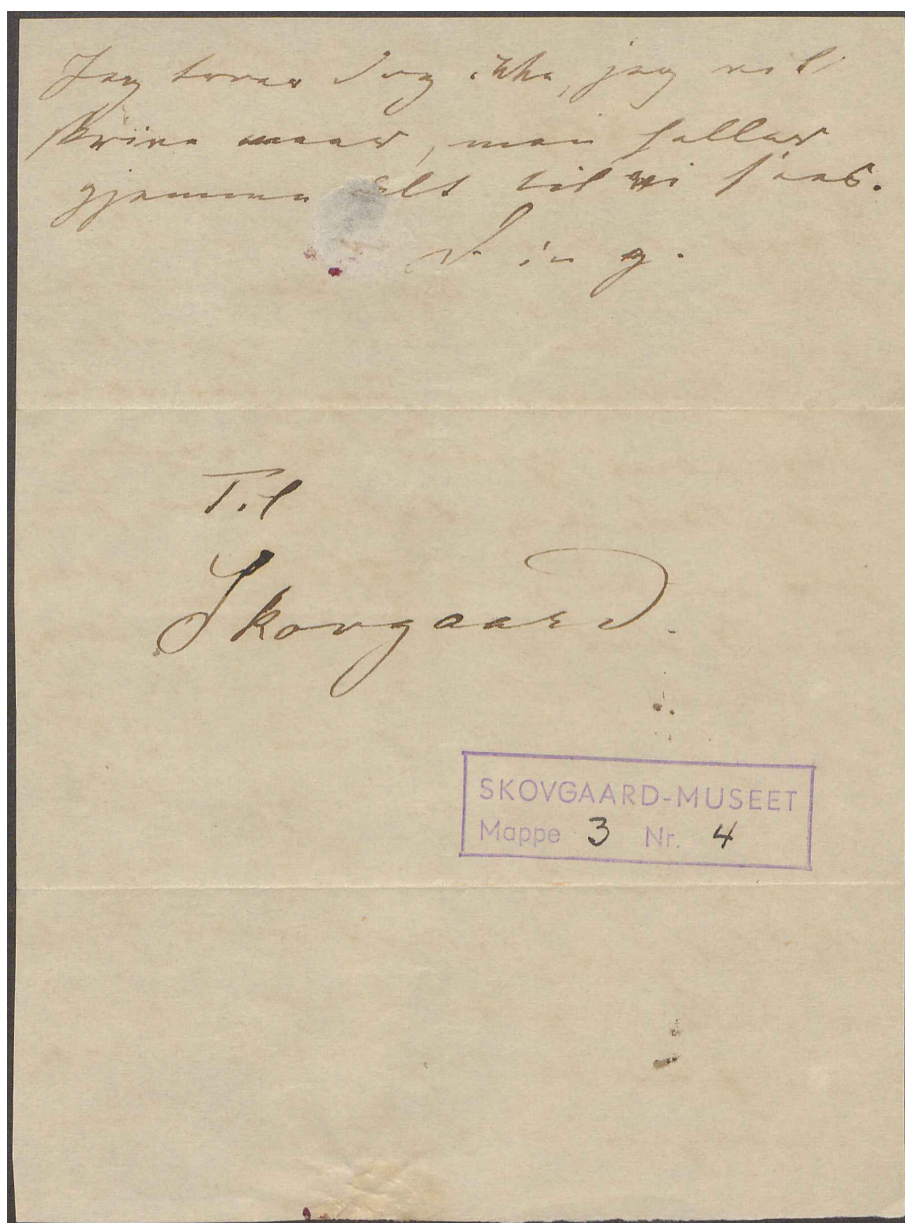 Jeg troer dog ikke, jeg vil
skrive meer, men heller
gjemme Alt til vi sees.
Din g.
Til
Skovgaard.
SKOVGAARD-MUSEET
Mappe 3 Nr. 4